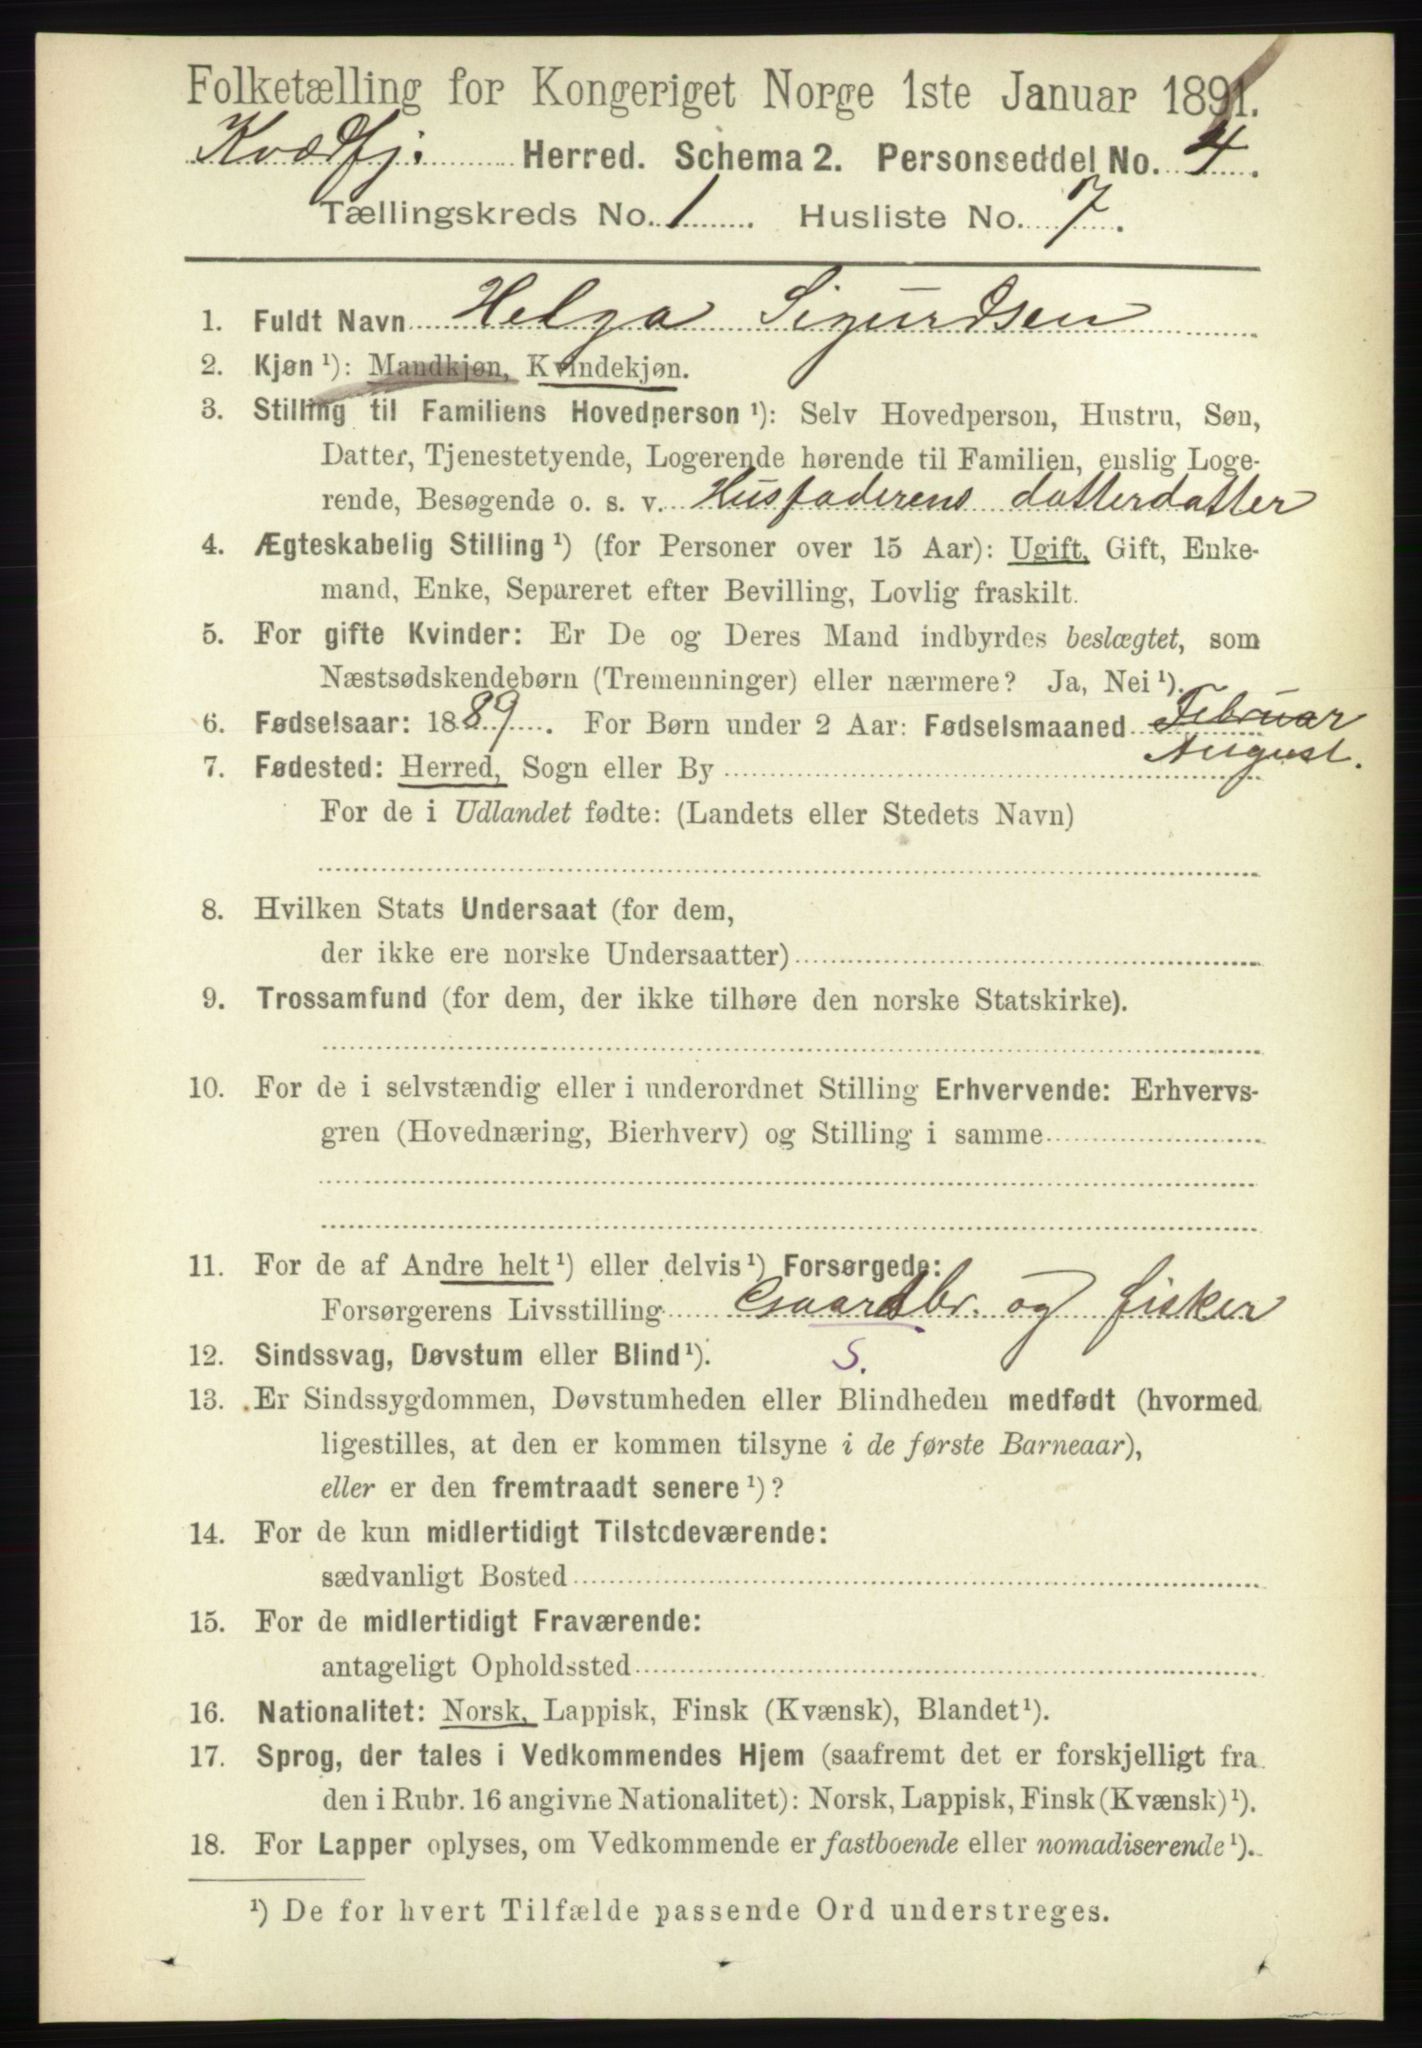 Folketælling for Kongeriget Norge 1ste Januar 1891.
Kvædfj. Herred. Schema 2. Personseddel No. 4.
Tællingskreds No. 1. Husliste No. 7.
1. Fuldt Navn Helga Sigurdsen
2. Kjøn ¹): Mandkjøn, Kvindekjøn.
3. Stilling til Familiens Hovedperson ¹): Selv Hovedperson, Hustru, Søn,
Datter, Tjenestetyende, Logerende hørende til Familien, enslig Loge-
rende, Besøgende o. s. v. Husfaderens datterdatter
4. Ægteskabelig Stilling ¹) (for Personer over 15 Aar): Ugift, Gift, Enke-
mand, Enke, Separeret efter Bevilling, Lovlig fraskilt.
5. For gifte Kvinder: Er De og Deres Mand indbyrdes beslægtet, som
Næstsødskendebørn (Tremenninger) eller nærmere? Ja, Nei ¹).
6. Fødselsaar: 1889. For Børn under 2 Aar: Fødselsmaaned Februar
August.
7. Fødested: Herred, Sogn eller By
For de i Udlandet fødte: (Landets eller Stedets Navn)
8. Hvilken Stats Undersaat (for dem,
der ikke ere norske Undersaatter)
9. Trossamfund (for dem, der ikke tilhøre den norske Statskirke).
10. For de i selvstændig eller i underordnet Stilling Erhvervende: Erhvervs-
gren (Hovednæring, Bierhverv) og Stilling i samme
11. For de af Andre helt ¹) eller delvis ¹) Forsørgede:
Forsørgerens Livsstilling Gaardbr. og fisker
12. Sindssvag, Døvstum eller Blind ¹). S.
13. Er Sindssygdommen, Døvstumheden eller Blindheden medfødt (hvormed
ligestilles, at den er kommen tilsyne i de første Barneaar),
eller er den fremtraadt senere ¹)?
14. For de kun midlertidigt Tilstedeværende:
sædvanligt Bosted
15. For de midlertidigt Fraværende:
antageligt Opholdssted
16. Nationalitet: Norsk, Lappisk, Finsk (Kvænsk), Blandet ¹).
17. Sprog, der tales i Vedkommendes Hjem (saafremt det er forskjelligt fra
den i Rubr. 16 angivne Nationalitet): Norsk, Lappisk, Finsk (Kvænsk) ¹).
18. For Lapper oplyses, om Vedkommende er fastboende eller nomadiserende ¹).
¹) De for hvert Tilfælde passende Ord understreges.